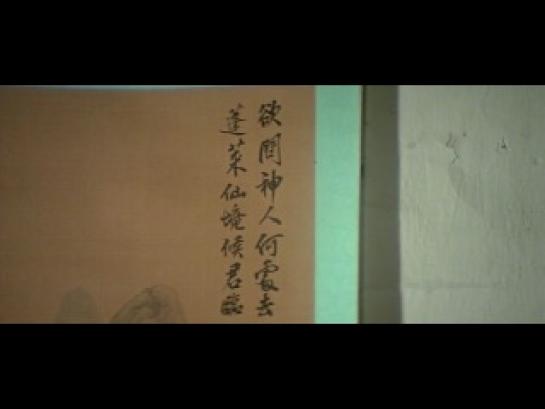 欲問神人何處去
蓬萊仙境候君臨